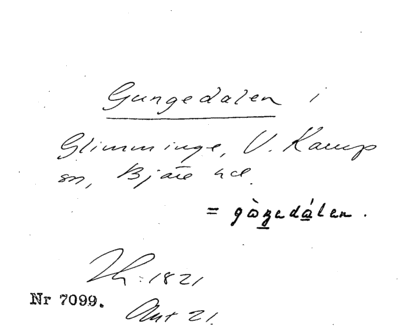 Gungedalen i
Glimminge, V. Karup
sn, Bjäre hd.
= gòŋedálen.
Th: 1821
Nr 7099.
Ant 21.